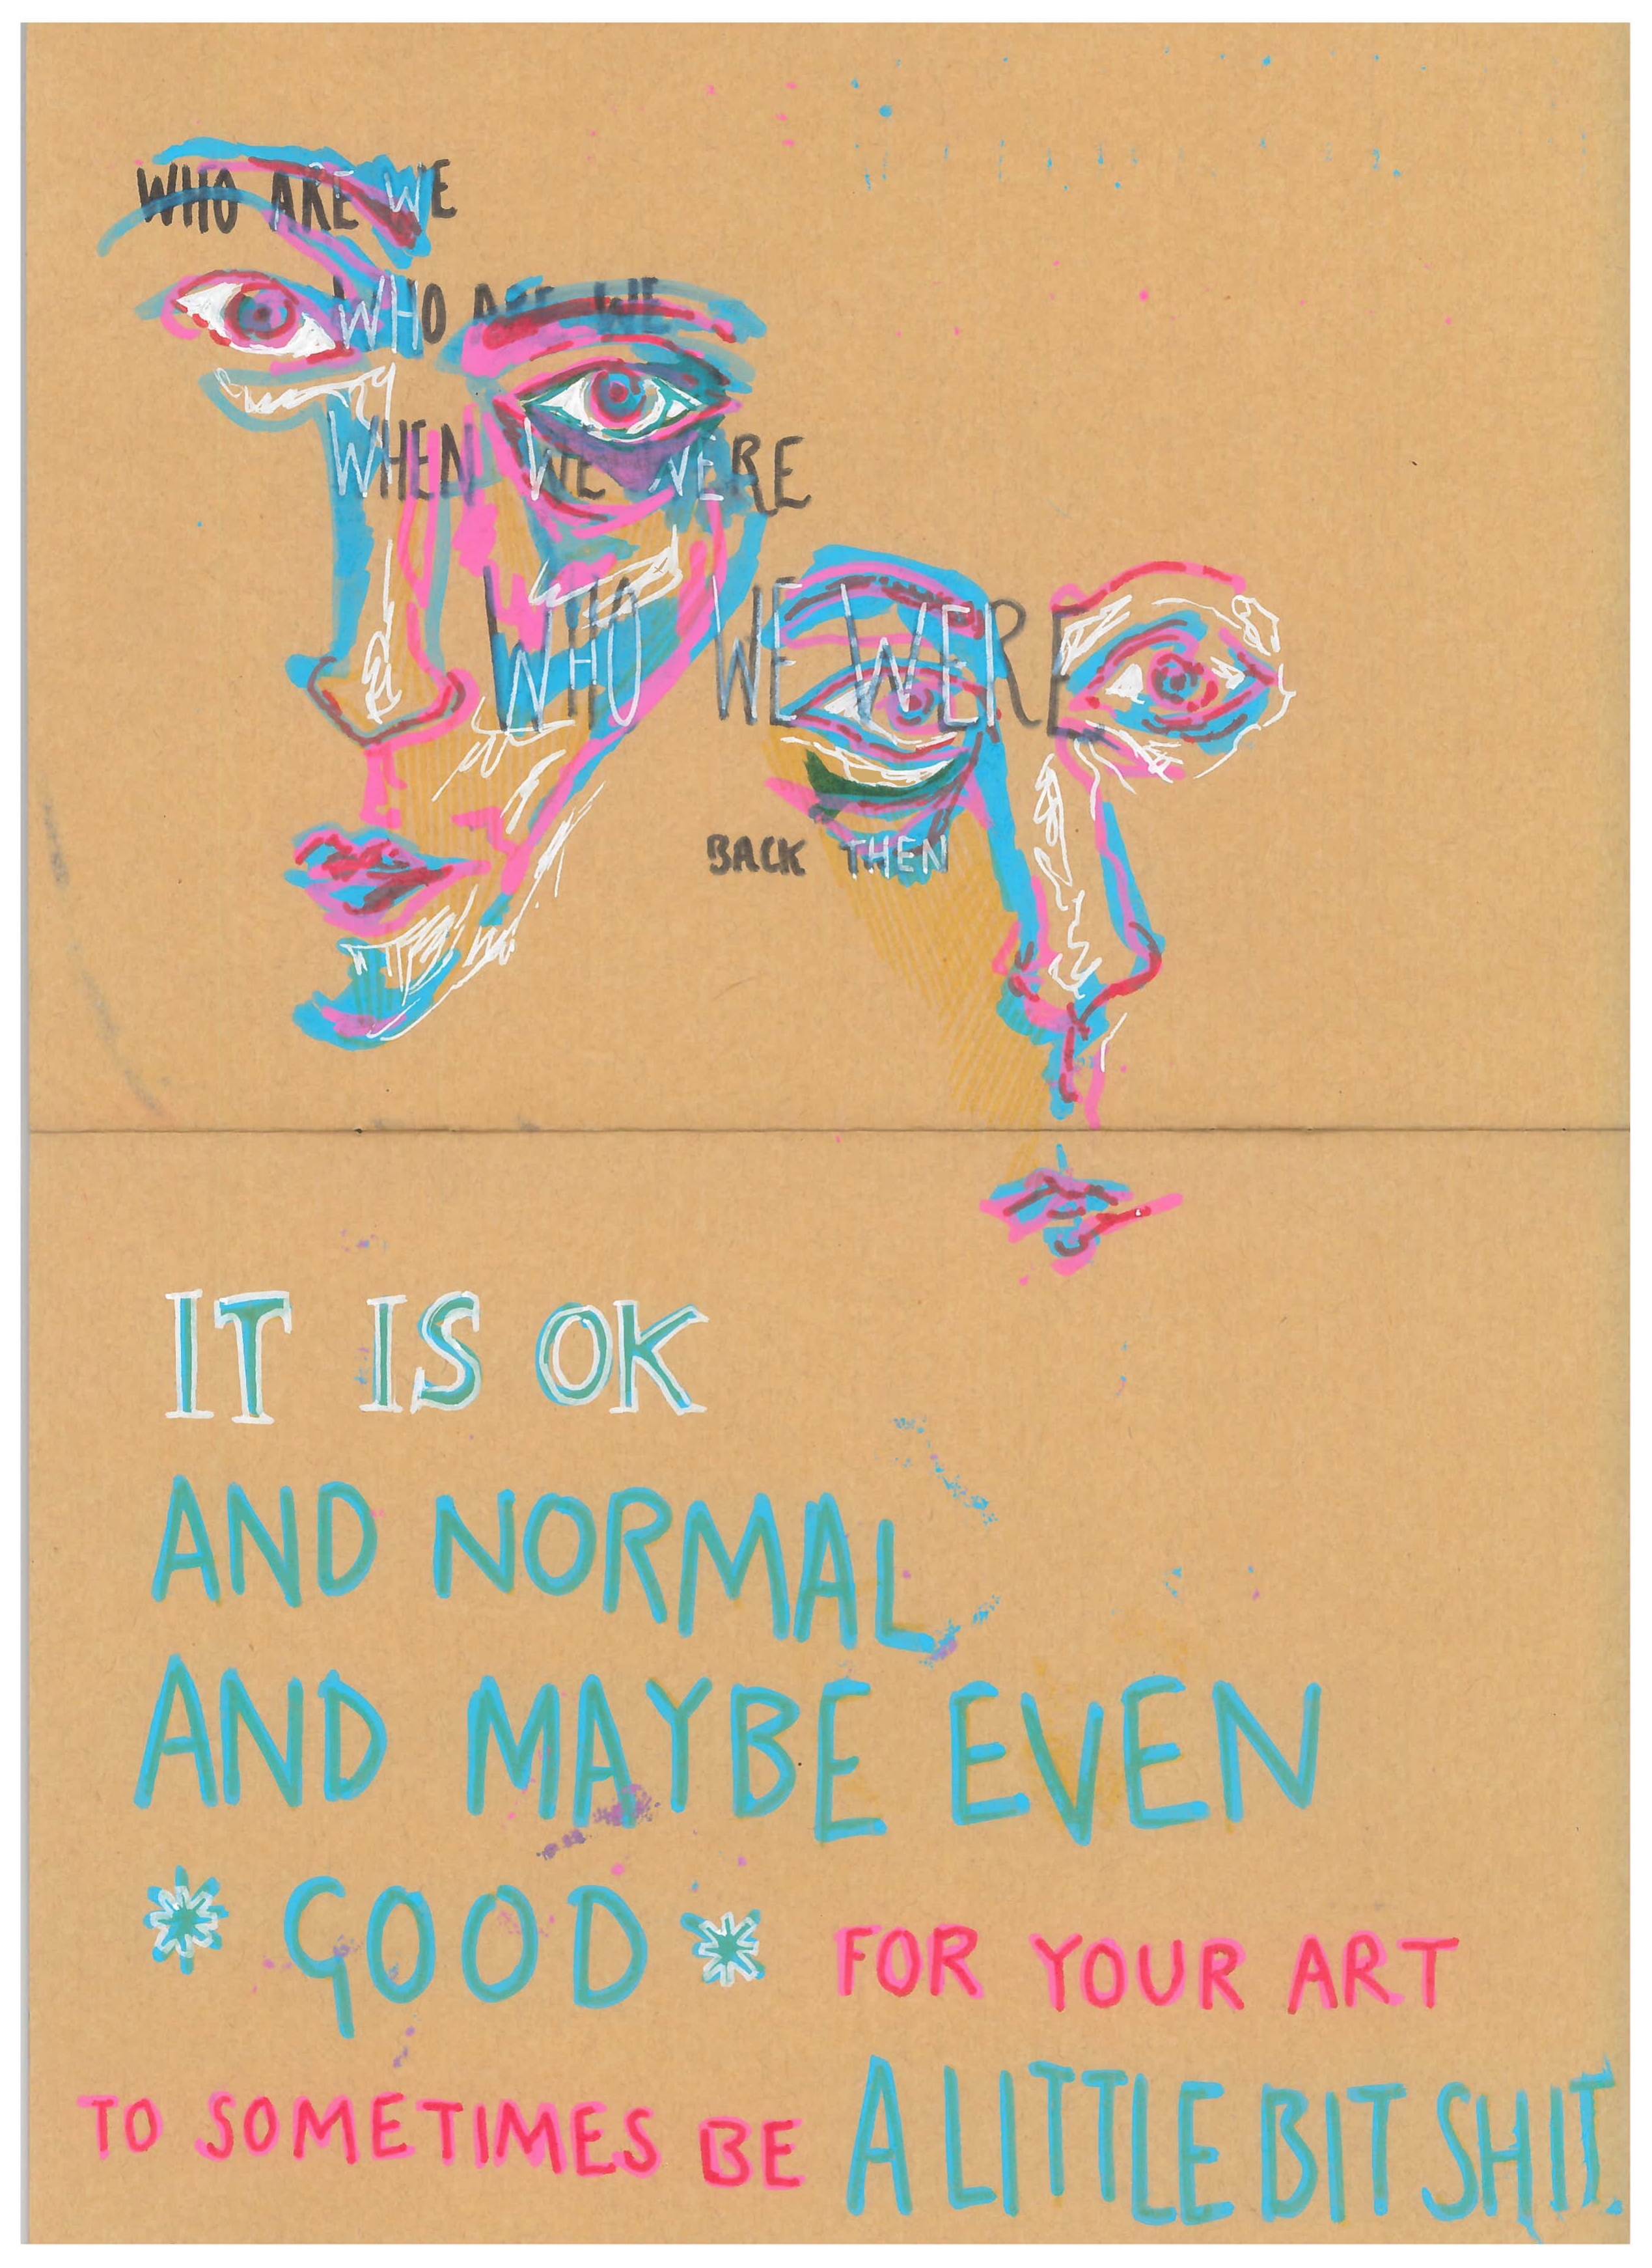 WHO ARE WE
WHO ARE WE
WHEN WE WERE
WHO WE WERE
BACK THEN
IT IS OK
AND NORMAL
AND MAYBE EVEN
* GOOD * FOR YOUR ART
TO SOMETIMES BE A LITTLE BIT SHIT.